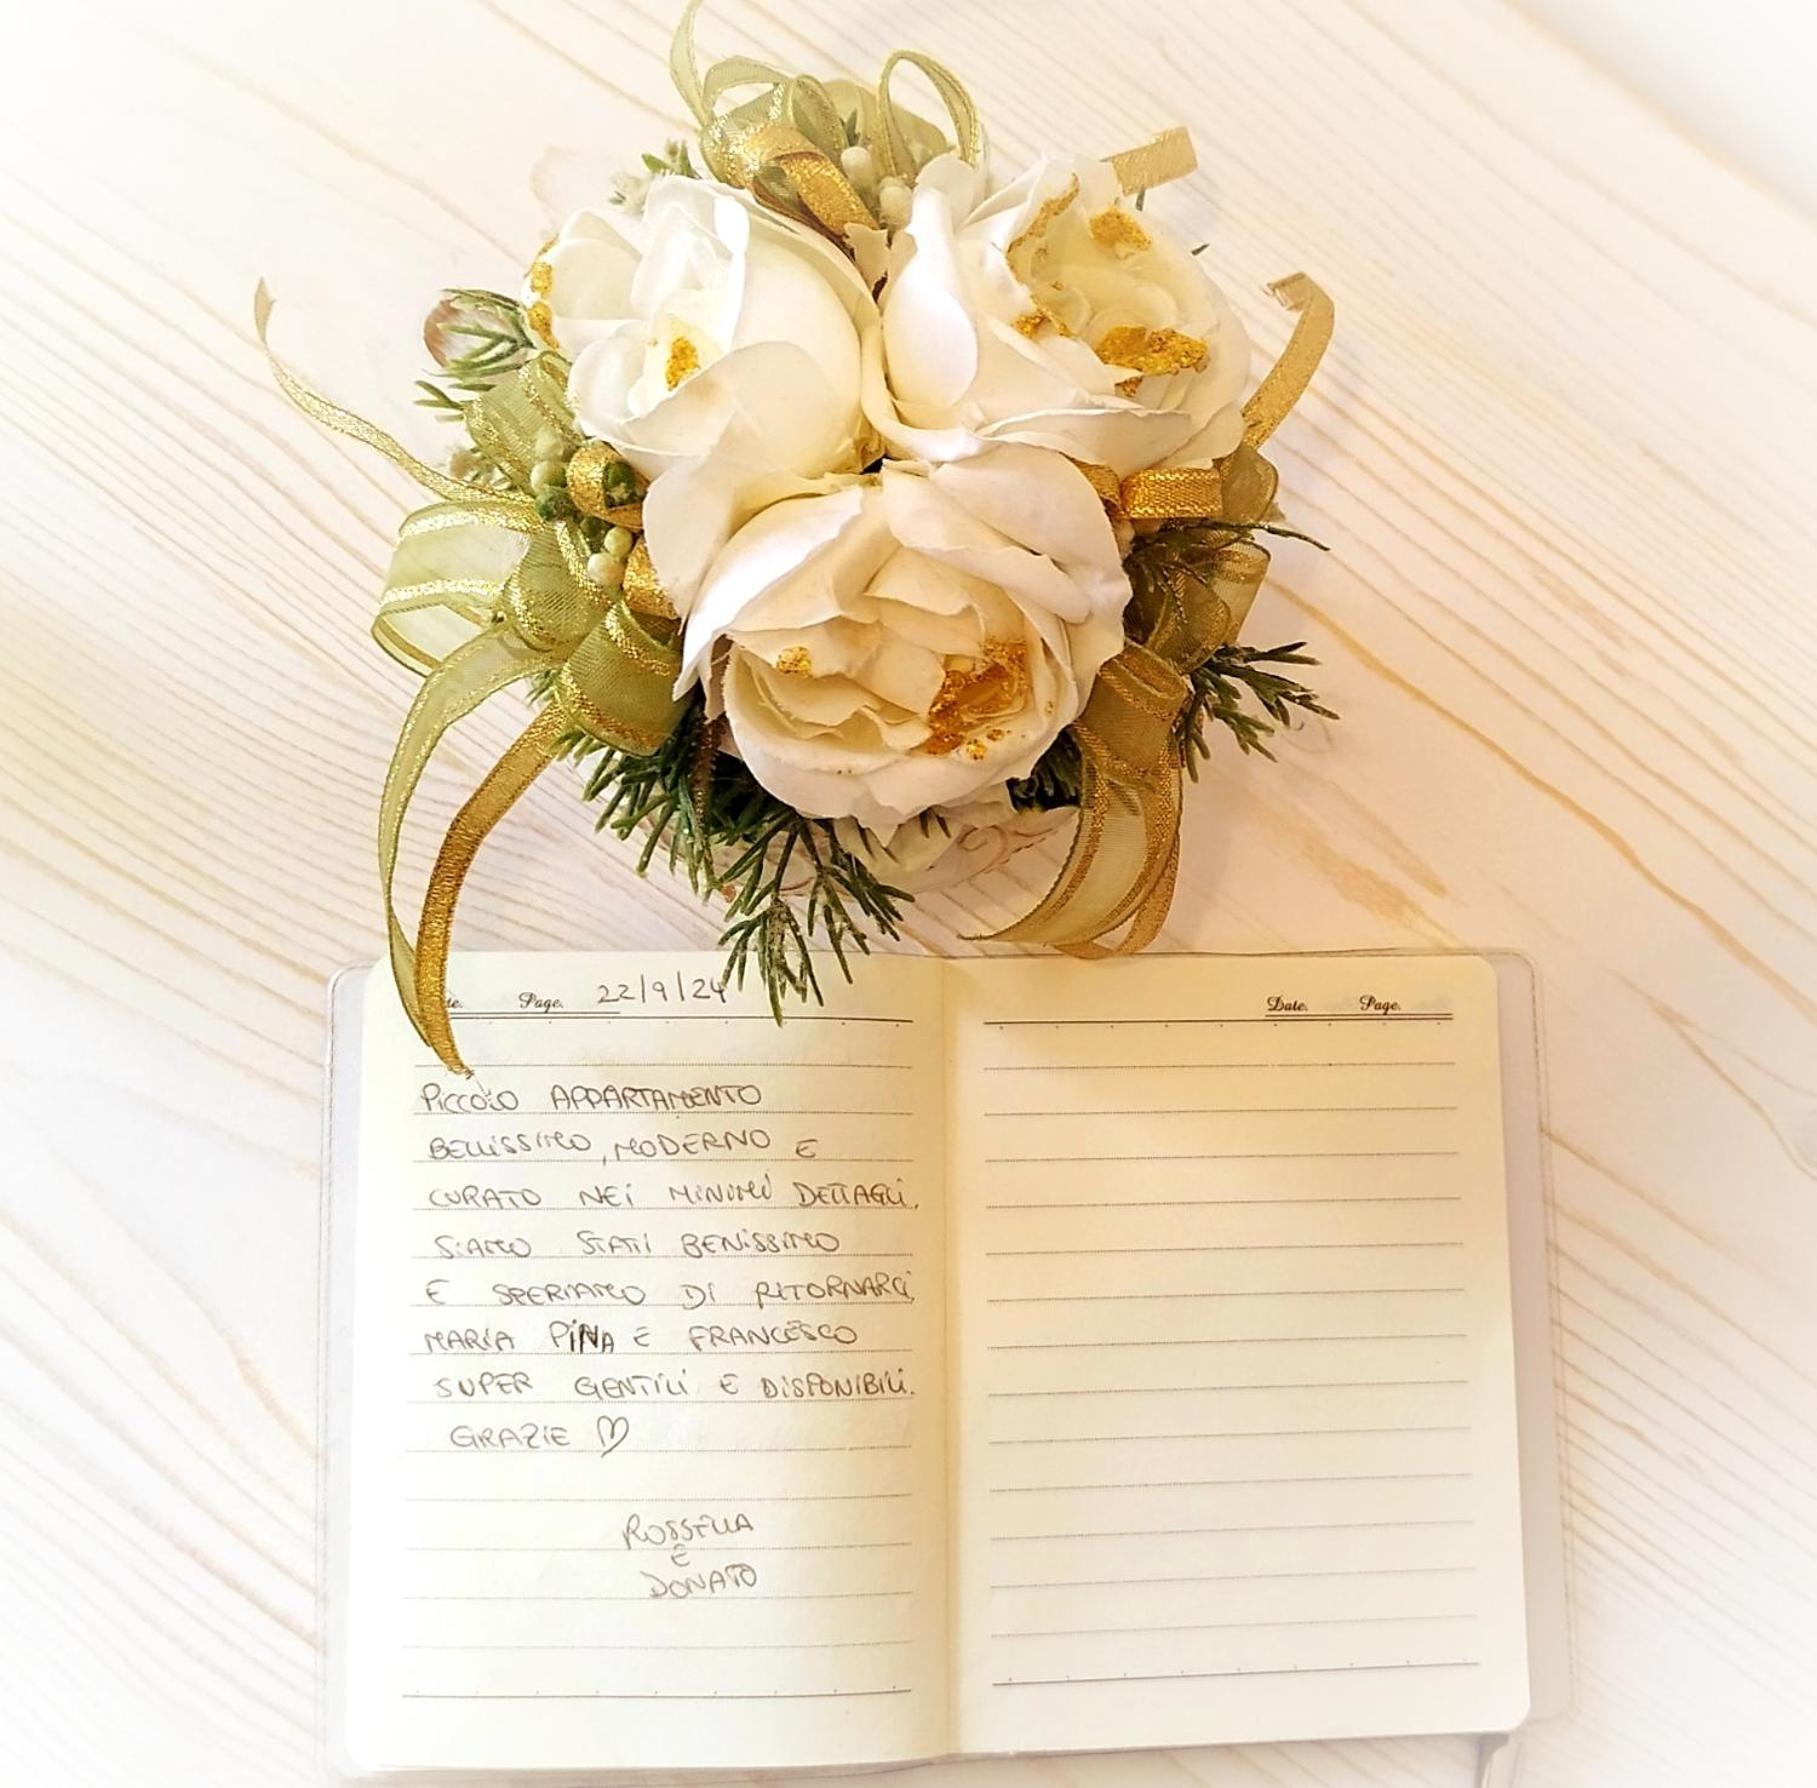 te. Page. 22/9/24
Date. Page.
PICCOLO APPARTAMENTO
BELLISSIMO, MODERNO E
CURATO NEI MINIMI DETTAGLI,
SIAMO STATI BENISSIMO
E SPERIAMO DI RITORNARCI,
MARIA PINA E FRANCESCO
SUPER GENTILI E DISPONIBILI.
GRAZIE ♡
ROSSELLA
E
DONATO